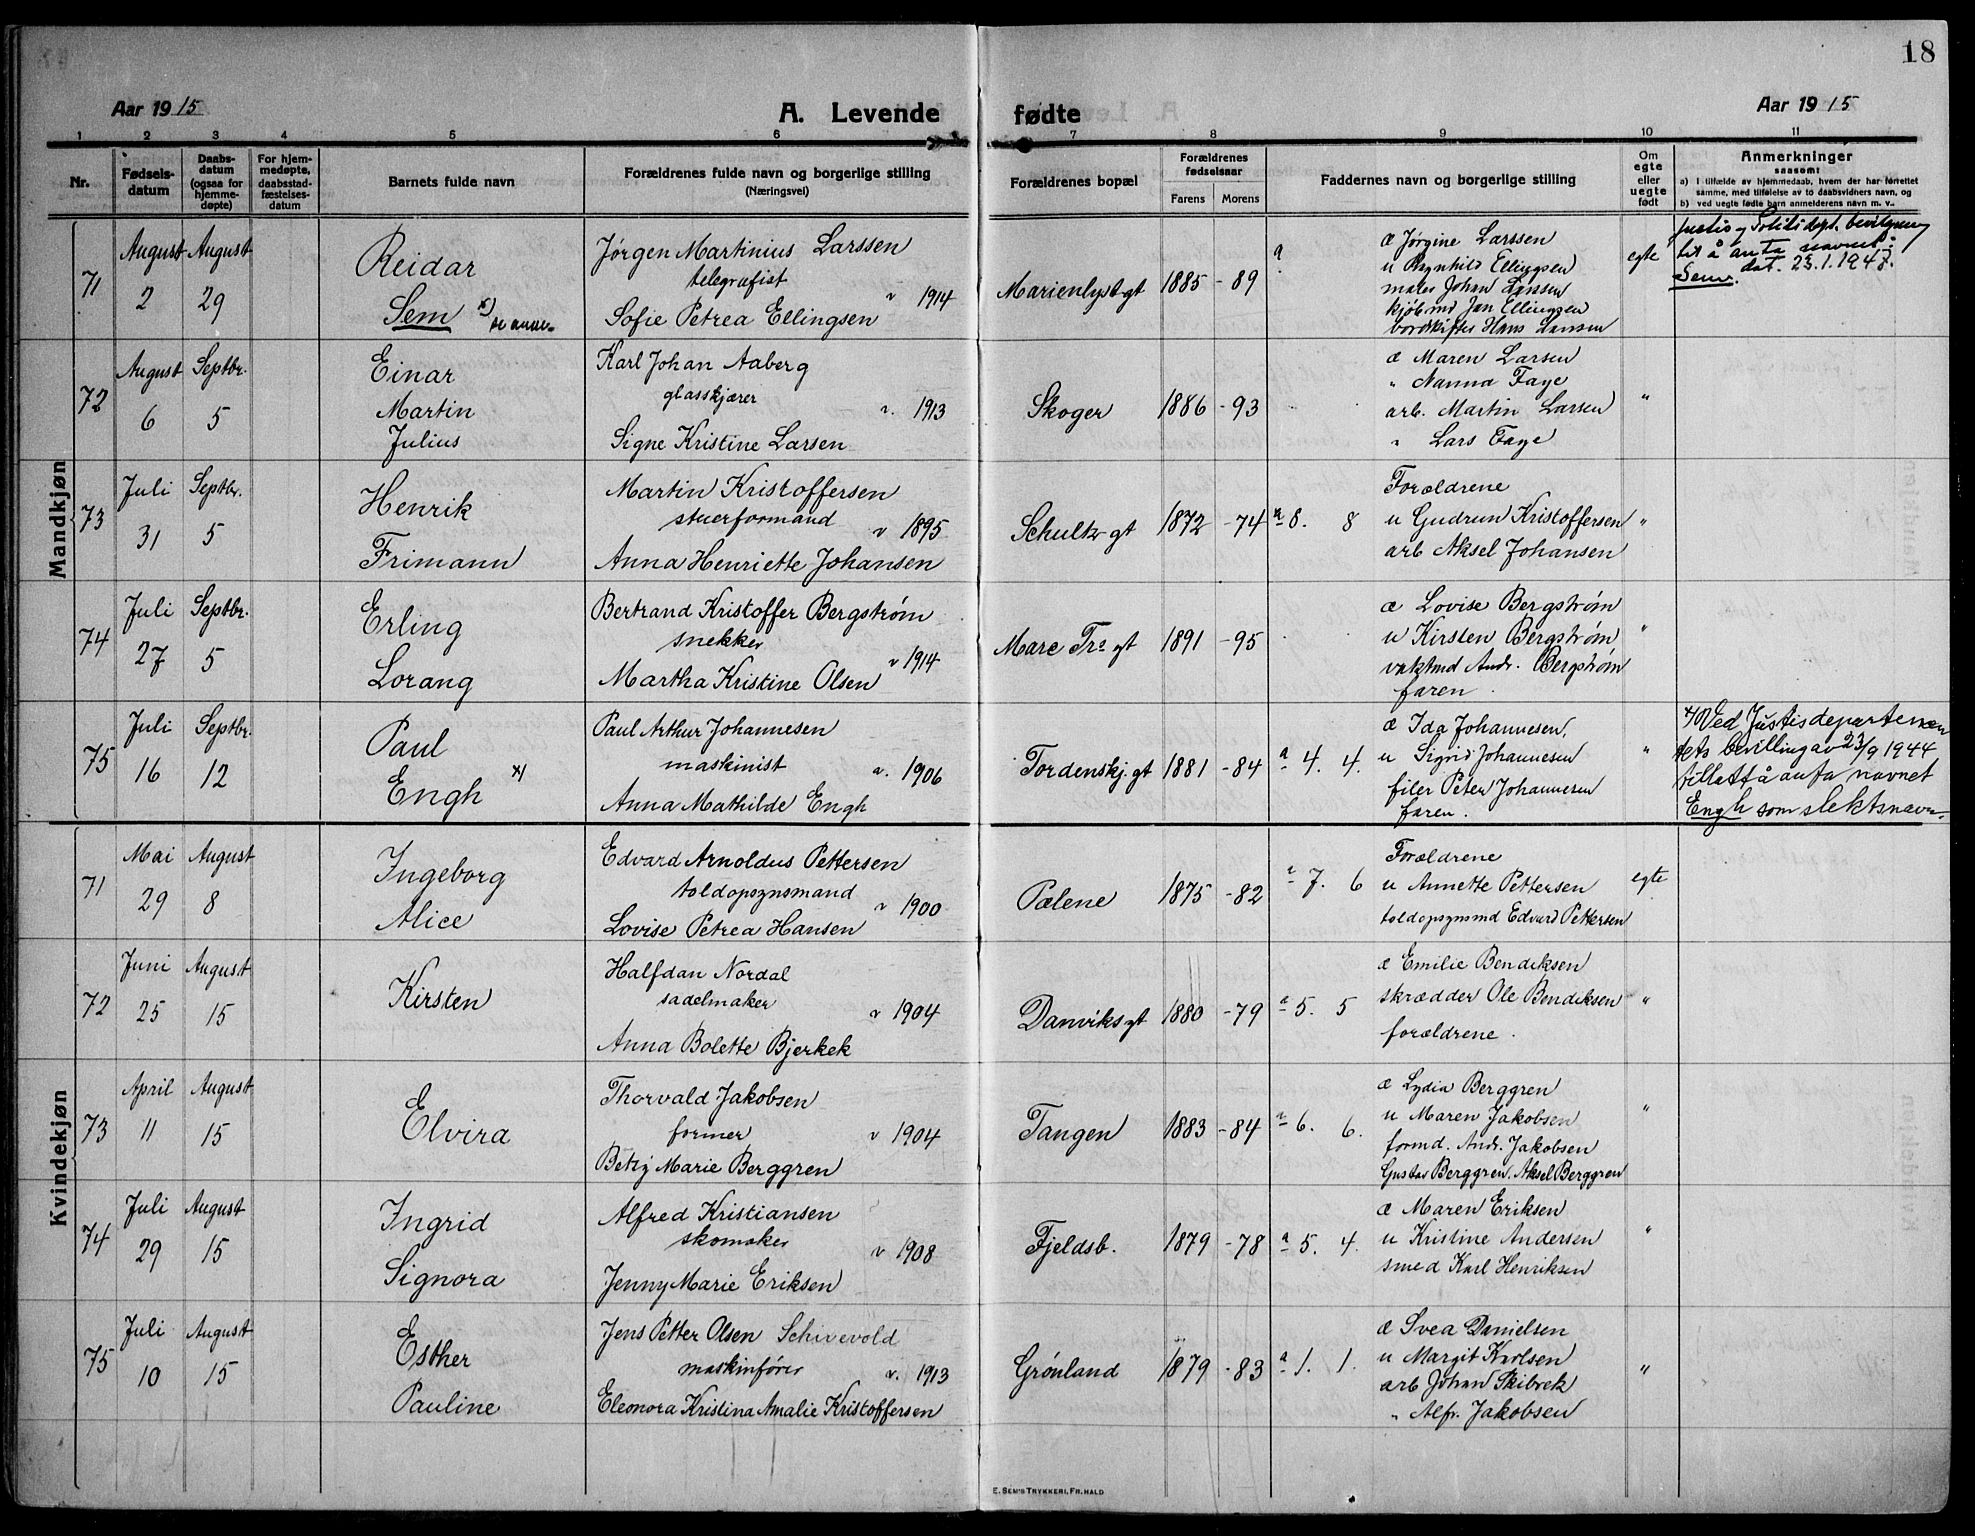 18
Aar 1915
A. Levende
fødte
Aar 1915
1 2 3 4 5 6 7 8 9 10 11
Nr.
Fødselsdatum
Daabsdatum (ogsaa for hjemmedøpte)
For hjemmedøpte, daabsstadfæstelsesdatum
Barnets fulde navn
Forældrenes fulde navn og borgerlige stilling
(Næringsvei)
Forældrenes bopæl
Forældrenes fødselsaar
Farens Morens
Faddernes navn og borgerlige stilling
Om egte eller uegte født
Anmerkninger
saasom:
a) I tilfælde av hjemmedaab, hvem der har forrettet
samme, med tilføielse av to daabsvidners navn, og
b) ved uegte fødte barn anmelderens navn m. v.
Mandkjøn
71
August 2
August 29
Reidar
Sem x)
Jørgen Martinius Larssen
telegrafist
v 1914
Sofie Petrea Ellingsen
Marienlystgt
1885 - 89
a
æ Jørgine Larssen
u Ragnhild Ellingsen
maler Johan Larssen
kjøbmd Jan Ellingsen
bordskifter Hans Larssen
egte
Justis og Politidept. bevilgning
til å anta navnet:
Sem. dat. 23.1.1947.
72
August 6
Septbr. 5
Einar
Martin
Julius
Karl Johan Aaberg
glasskjærer
v. 1913
Signe Kristine Larsen
Skoger
1886 - 93
æ Maren Larsen
" Nanna Faye
arb. Martin Larsen
" Lars Faye
"
73
Juli 31
Septbr. 5
Henrik
Frimann
Martin Kristoffersen
stuerformand
v 1895
Anna Henriette Johansen
Schultz gt
1872 - 74
a 8. 8
Forældrene
u Gudrun Kristoffersen
arb Aksel Johansen
"
74
Juli 27
Septbr. 5
Erling
Lorang
Bertrand Kristoffer Bergstrøm
snekker
v 1914
Martha Kristine Olsen
Marc Tr. gt
1891 - 95
æ Lovise Bergstrøm
u Kirsten Bergstrøm
vaktmd Andr. Bergstrøm
faren.
"
75
Juli 16
Septbr. 12
Paul
Engh x)
Paul Arthur Johannesen
maskinist
v. 1906
Anna Mathilde Engh
Tordenskj. gt
1881 - 84
a 4. 4.
æ Ida Johannesen,
u Sigrid Johannesen
filer Peter Johannesen
faren.
"
x) Ved Justisdepartemen
tets bevilling av 23/9 1944
tillatt å anta navnet
Engh som slektsnavn.
Kvindekjøn
71
Mai 29
August 8
Ingeborg
Alice
Edvard Arnoldus Pettersen
toldopsynsmand
v 1900
Lovise Petrea Hansen
Pælene
1875 - 82
a 7. 6
Forældrene
u Annette Pettersen
toldopsynsmd Edvard Pettersen
egte
72
Juni 25
August 15
Kirsten
Halfdan Nordal
sadelmaker
v 1904
Anna Bolette Bjerkek
Danviks gt
1880 - 79
a 5. 5
æ Emilie Bendiksen
skrædder Ole Bendiksen
forældrene.
"
73
April 11
August 15
Elvira
Thorvald Jakobsen
former
v 1904
Betsy Marie Berggren
Tangen
1883 - 84
a 6. 6.
æ Lydia Berggren
u Maren Jakobsen
formd. Andr. Jakobsen
Gustav Berggren. Aksel Berggren
"
74
Juli 29
August 15
Ingrid
Signora
Alfred Kristiansen
skomaker
v 1908
Jenny Marie Eriksen
Fjeldsb.
1879 - 78
a 5. 4.
æ Maren Eriksen
u Kristine Andersen
smed Karl Henriksen
"
75
Juli 10
August 15
Esther
Pauline
Jens Petter Olsen Schivevold
maskinfører
v. 1913
Eleonora Kristina Amalie Kristoffersen
Grønland
1879 - 83
a 1. 1.
æ Svea Danielsen
u Margit Karlsen
arb Johan Skibrek
" Alfr. Jakobsen
"
E. Sem's Trykkeri, Fr.hald